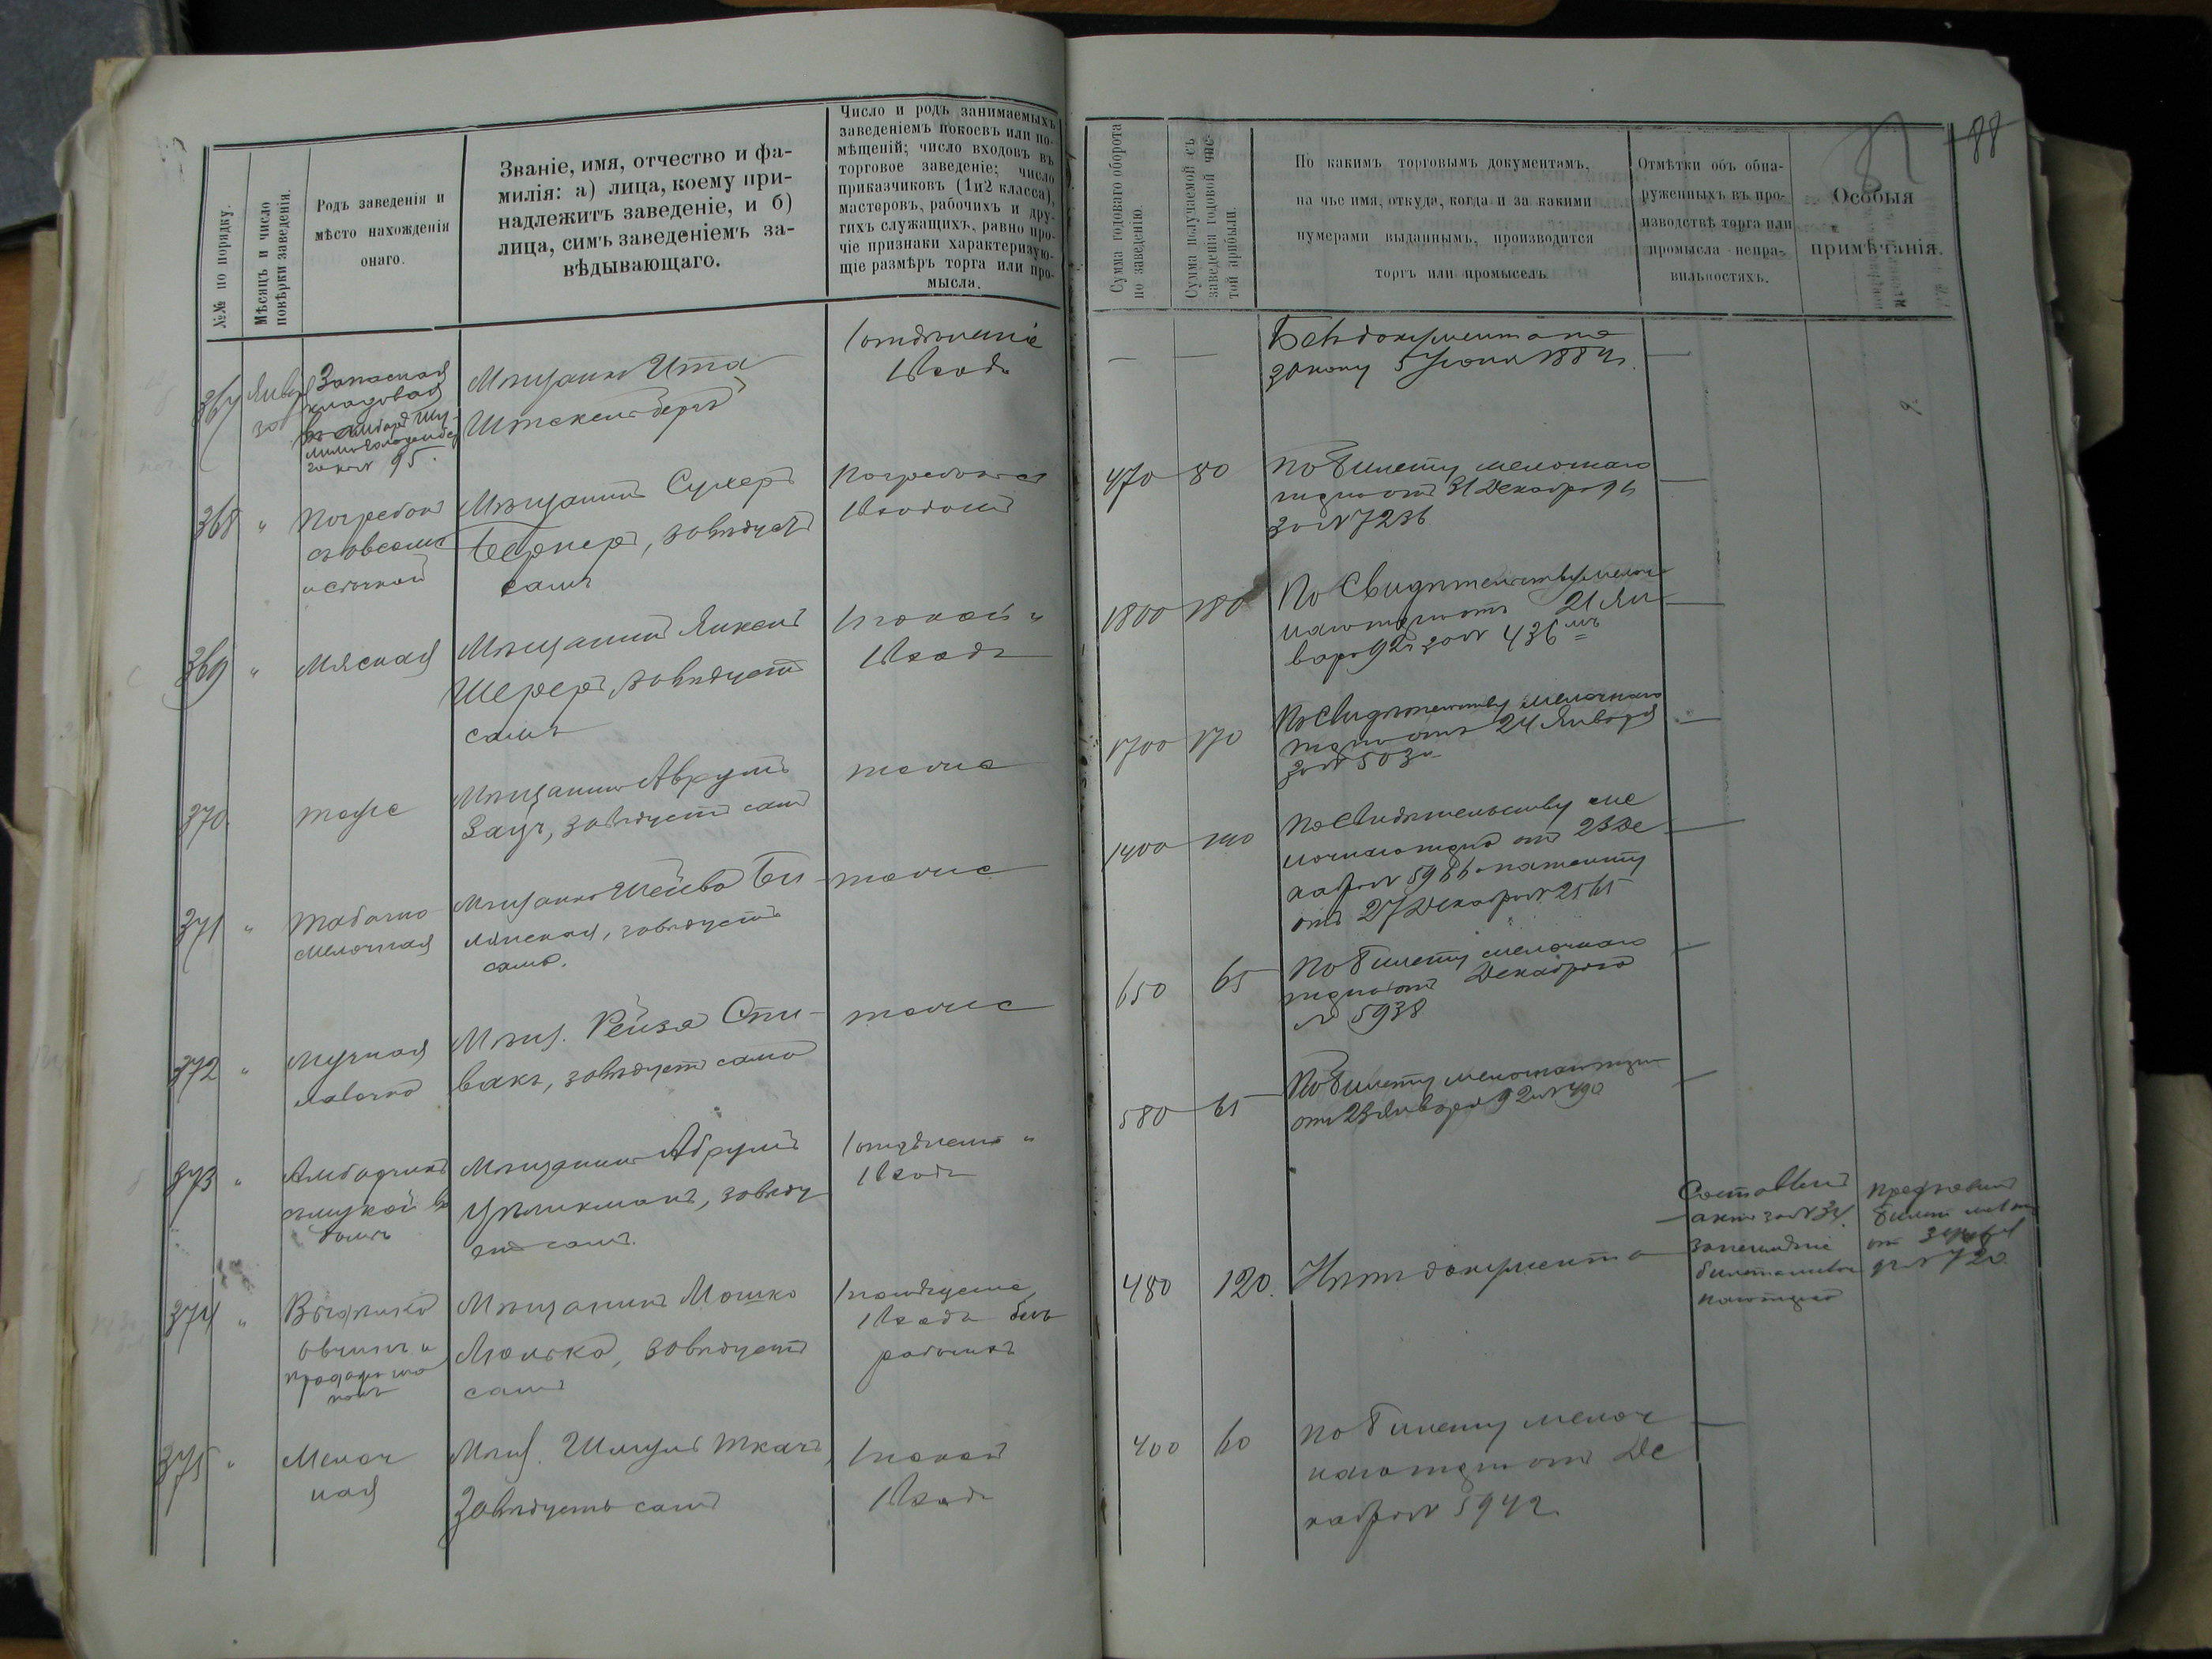 №№ по порядку.
Мѣсяцъ и число
повѣрки заведенія.
Родъ заведенія и
мѣсто нахожденія
онаго.
Званіе, имя, отчество и фа-
милія: а) лица, коему при-
надлежитъ заведеніе, и б)
лица, симъ заведеніемъ за-
вѣдывающаго.
Число и родъ занимаемыхъ
заведеніемъ покоевъ или по-
мѣщеній; число входовъ въ
торговое заведеніе; число
приказчиковъ (1 и 2 класса),
мастеровъ, рабочихъ и дру-
гихъ служащихъ, равно про-
чіе признаки характеризую-
щіе размѣръ торга или про-
мысла.
Сумма годоваго оборота
по заведенію.
Сумма получаемой съ
заведенія годовой чис-
той прибыли.
По какимъ торговымъ документамъ,
на чье имя, откуда, когда и за какими
нумерами выданнымъ, производится
торгъ или промыселъ
Отмѣтки объ обна-
руженныхъ въ про-
изводствѣ торга или
промысла непра-
вильностяхъ.
Особыя
примѣчанія.
88
367
Янв
30
Запасная
кладовая
95.
Мѣщанка Ита
Штекельбергъ
1 отдѣленіе
1 входъ
— —
Безъ документа по
закону 5 Іюня 1884 г.
—
368 "
Погребокъ
съ овсомъ
и сѣчкой
Мѣщанинъ Сухеръ
Бернеръ, завѣдуетъ
самъ
Погребокъ съ
1 входомъ
470 80
По билету мелочнаго
торга отъ 31 Декабря 91
за № 7236
—
369 "
Мясная
Мѣщанинъ Янкель
Шереръ, завѣдуетъ
самъ
1 покой и
1 входъ
1800 180
По Свидѣтельству мелоч
наго торга отъ 21 Ян
варя 92 г за № 436
—
370.
тоже
Мѣщанинъ Аврумъ
Зацъ, завѣдуетъ самъ
тоже
1700 170
По Свидѣтельству мелочнаго
торга отъ 24 Января
за № 503
—
371 "
Табачно
мелочная
Мѣщанка Шейва Би-
лянская, завѣдуетъ
сама.
тоже
1400 140
По Свидѣтельству ме
лочнаго торга отъ 23 Де
кабря № 5966 и патенту
отъ 27 Декабря № 2565
—
372 "
Мучная
лавочка
Мѣщ. Рейза Спи-
вакъ, завѣдуетъ сама
тоже
650 65
По билету мелочнаго
торга отъ Декабря
№ 5938
—
373 "
Амбарчикъ
съ мукой
Мѣщанинъ Абрумъ
Цѣликманъ, завѣду
етъ самъ.
1 отдѣленіе и
1 входъ
580 65
По билету мелочнаго торга
отъ 23 Января 92 № 490
—
374 "
Выдѣлка
овчинъ и
Мѣщанинъ Мошко
Люлька, завѣдуетъ
самъ
1 помѣщеніе
1 входъ безъ
рабочихъ
480 120.
Нѣтъ документа
Составленъ
актъ за № 34.
билета мелоч
наго торга
Предъявилъ
билетъ
№ 720.
375 "
Мелоч
ная
Мѣщ. Шмуль Ткачъ,
Завѣдуетъ самъ
1 покой
1 входъ
400 60
По билету мелоч
наго торга отъ Де
кабря № 5942
—